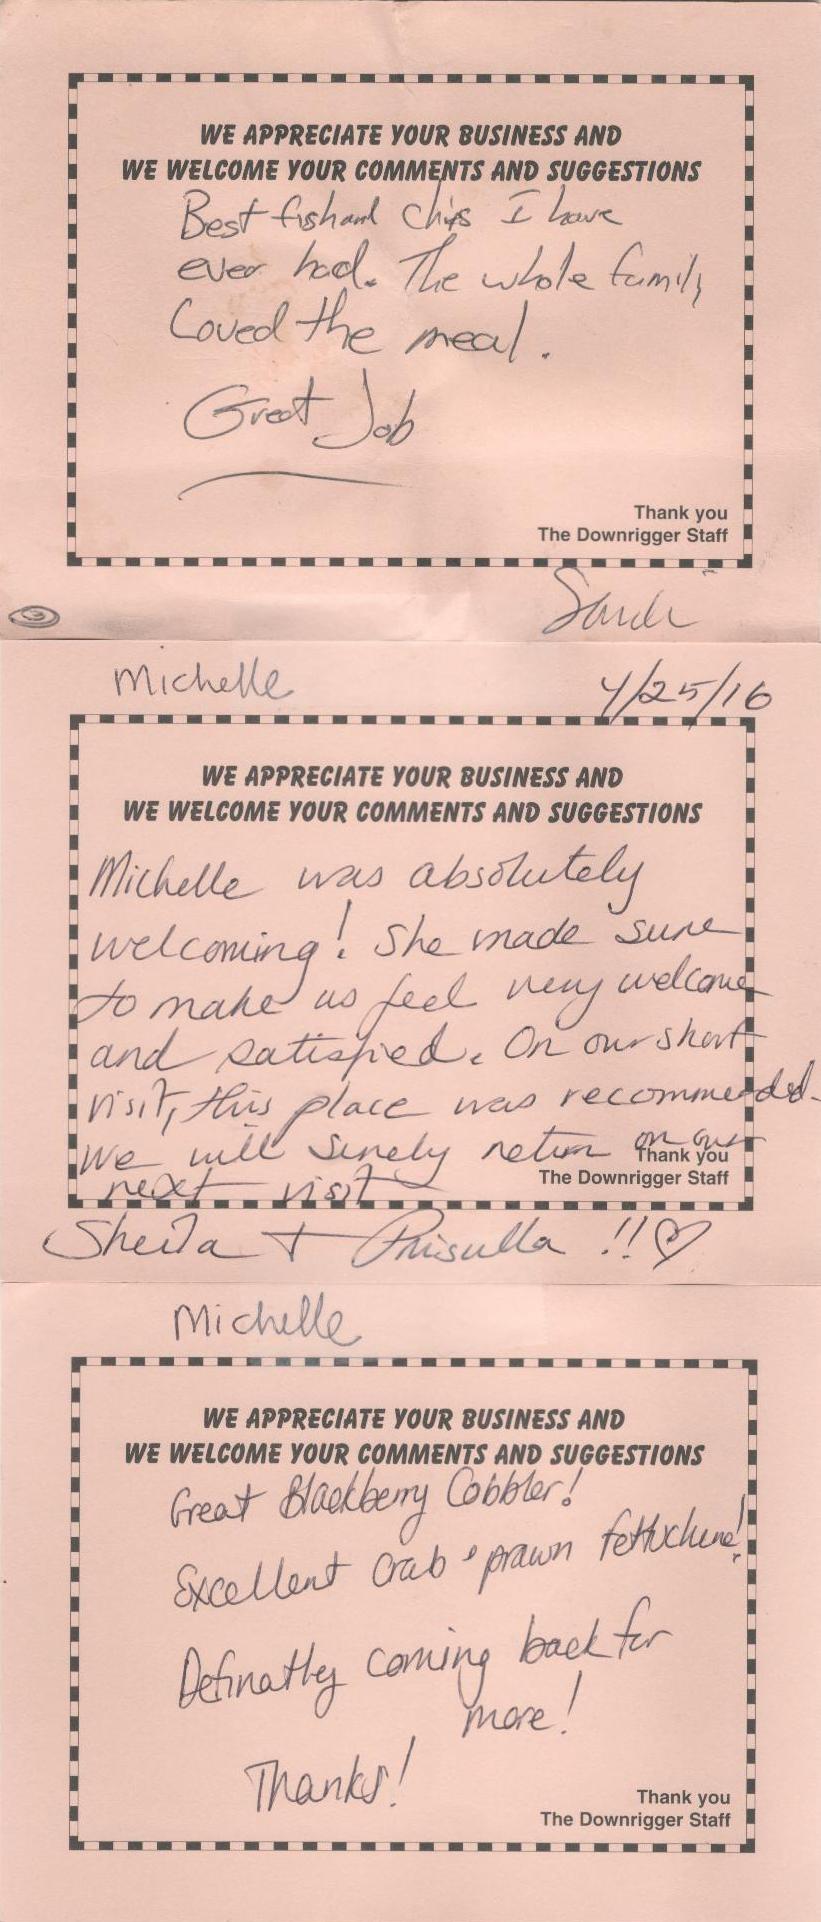 WE APPRECIATE YOUR BUSINESS AND
WE WELCOME YOUR COMMENTS AND SUGGESTIONS
Best fish and chips I have
ever had. The whole family
Loved the meal.
Great Job
Thank you
The Downrigger Staff
Michelle
4/25/16
WE APPRECIATE YOUR BUSINESS AND
WE WELCOME YOUR COMMENTS AND SUGGESTIONS
Michelle was absolutely
welcoming! She made sure
to make us feel very welcome
and satisfied. On our short
visit, this place was recommended.
We will surely return on our
Thank you
next visit
The Downrigger Staff
Sheila + Prisulla !!♡
Michelle
WE APPRECIATE YOUR BUSINESS AND
WE WELCOME YOUR COMMENTS AND SUGGESTIONS
Great Blackberry Cobbler!
Excellent Crab & prawn fettuchene!
Definatly coming back for
more!
Thanks!
Thank you
The Downrigger Staff